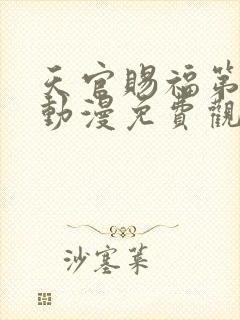 天官賜福第
動漫免費觀
沙塞菜